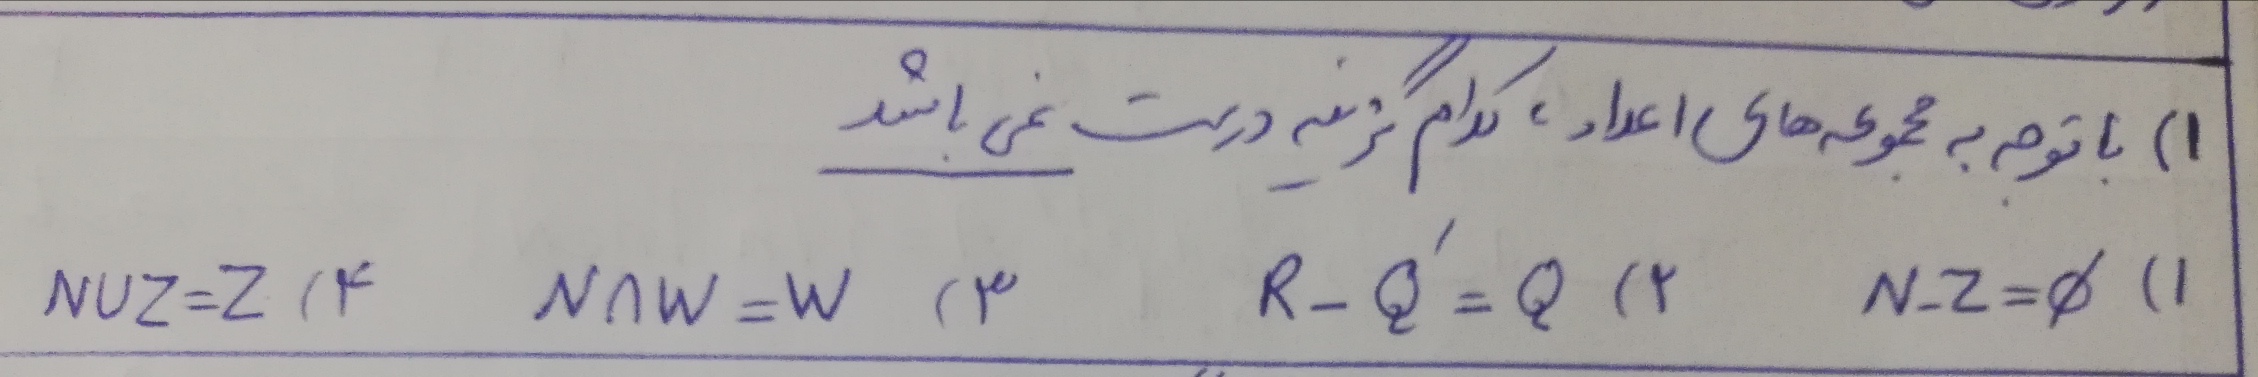 ۱) با توجه به مجموعه های اعداد، کدام گزینه درست نمی باشد؟
۱) N-Z=∅ ۲) R-Q′=Q ۳) N∩W=W ۴) NUZ=Z